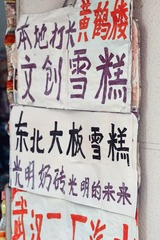 黄鹤楼
本地打卡
文创雪糕
东北大板雪糕
光明奶砖光明的未来
武汉二厂汽水